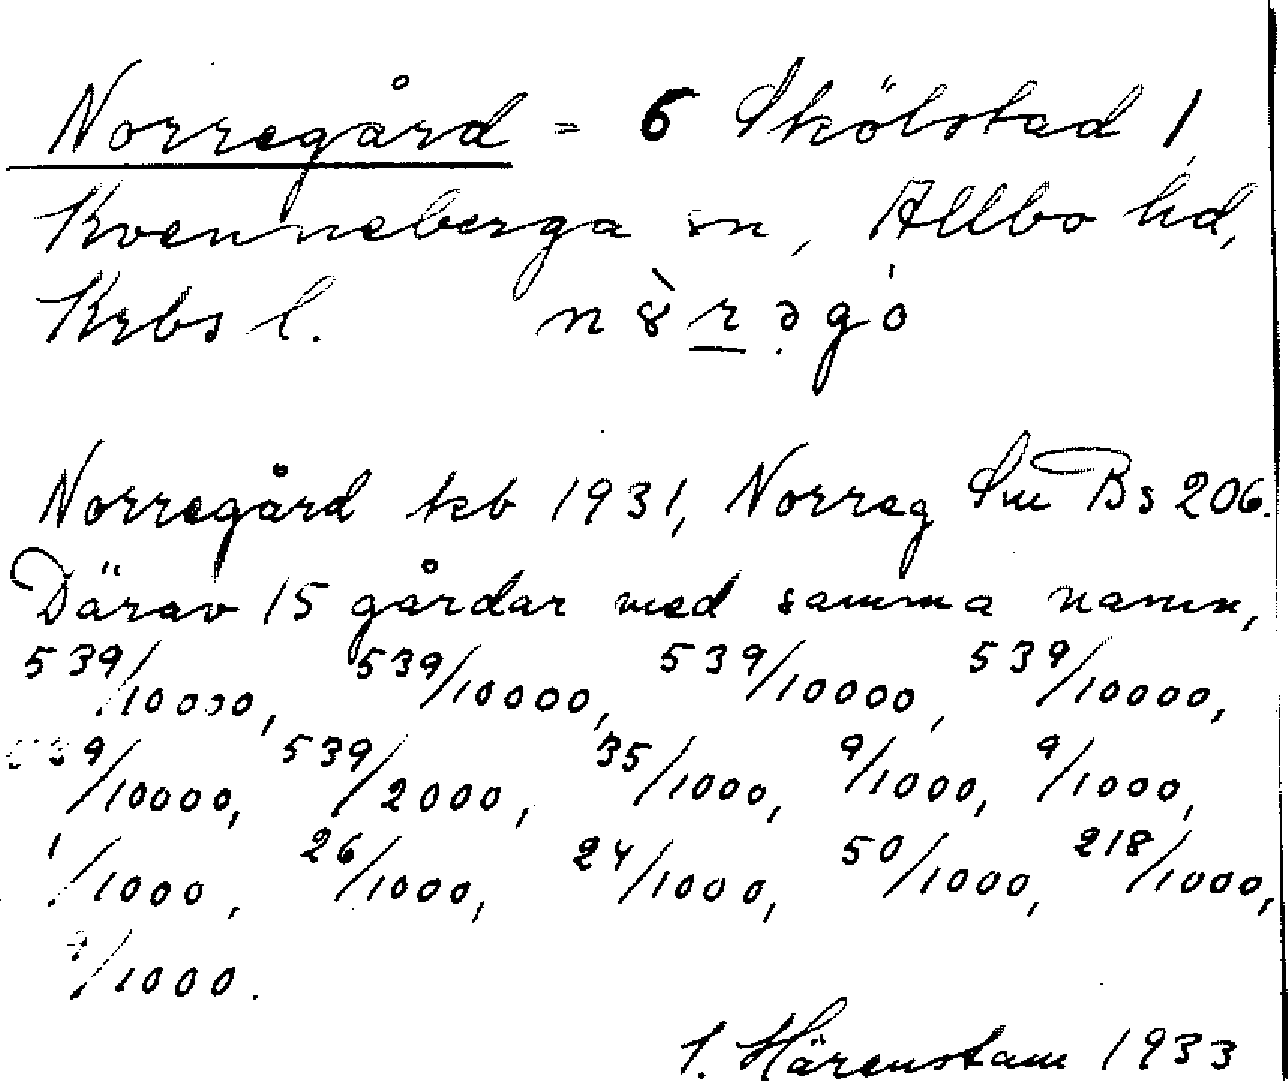 Norregård = 6 Skölstad 1,
Kvenneberga sn, Allbo hd,
Krbs l. n ȣ̀ r ə g ó
Norregård kb 1931, Norreg Su Bs 206.
Därav 15 gårdar med samma namn,
539/10000, 539/10000, 539/10000, 539/10000,
539/10000, 539/2000, 35/1000, 9/1000, 9/1000,
1/1000, 26/1000, 24/1000, 50/1000, 218/1000,
/1000.
Härenstam 1933